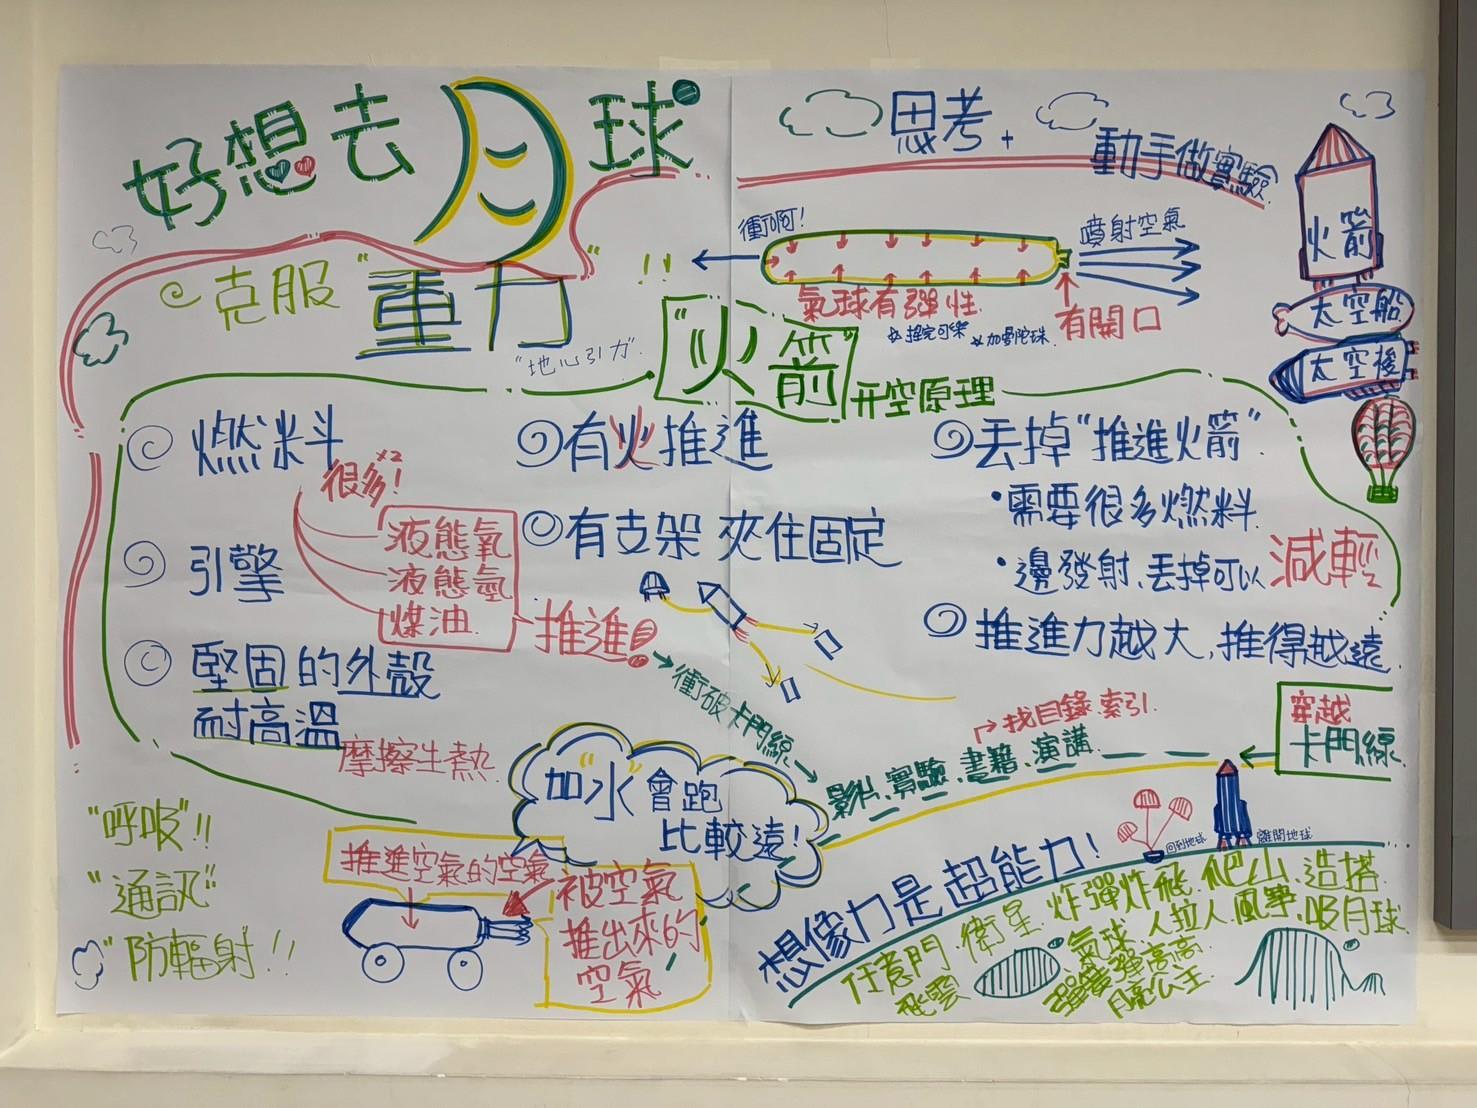 好想去月球
克服"重力"!!
"地心引力"
思考+
動手做實驗
衝啊!
噴射空氣
氣球有彈性
有開口
火箭
太空船
"火箭"升空原理
燃料
很多!x2
液態氧
液態氫
煤油
推進!
引擎
堅固的外殼
耐高溫
摩擦生熱
有火推進
有支架 夾住固定
丟掉"推進火箭"
·需要很多燃料
·邊發射、丟掉可以減輕
推進力越大,推得越遠
→衝破卡門線→
找目錄、索引
影片、實驗、書籍、演講
穿越
卡門線
"呼吸"!!
"通訊"
"防輻射"!!
加"水"會跑
比較遠!
推進空氣的空氣
被空氣
推出來的
空氣
想像力是超能力!
回到地球
離開地球
任意門 衛星 炸彈炸飛 爬山、造塔
飛雲 氣球 人拉人、風箏、
彈高高
月亮公主